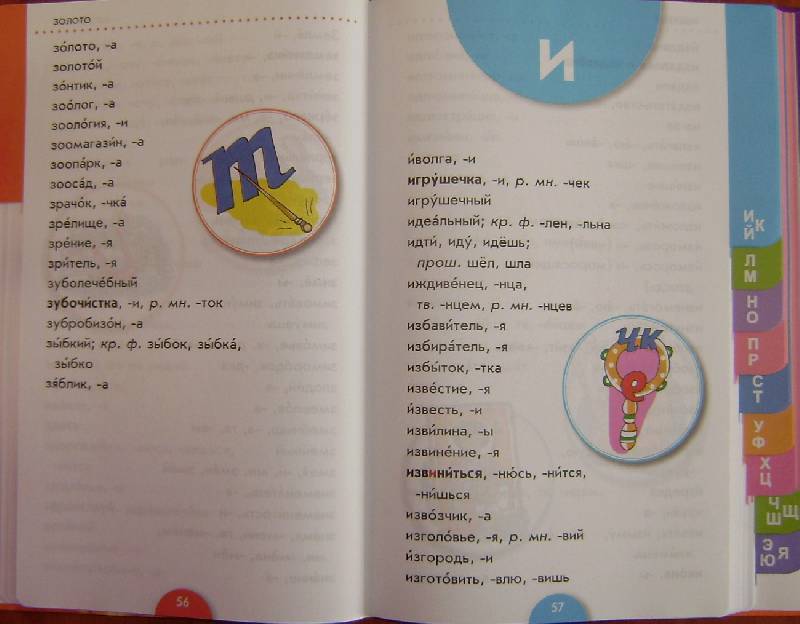 золото
зо́лото, -а
золото́й
зо́нтик, -а
зоо́лог, -а
зооло́гия, -и
зоомагази́н, -а
зоопа́рк, -а
зооса́д, -а
зрачо́к, -чка́
зре́лище, -а
зре́ние, -я
зри́тель, -я
зуболече́бный
зубочи́стка, -и, р. мн. -ток
зубробизо́н, -а
зы́бкий; кр. ф. зы́бок, зы́бка́,
зы́бко
зя́блик, -а
т
56
И
и́волга, -и
игру́шечка, -и, р. мн. -чек
игру́шечный
идеа́льный; кр. ф. -лен, -льна
идти́, иду́, идёшь;
прош. шёл, шла
иждиве́нец, -нца,
тв. -нцем, р. мн. -нцев
избави́тель, -я
избира́тель, -я
избы́ток, -тка
изве́стие, -я
и́звесть, -и
изви́лина, -ы
извине́ние, -я
извини́ться, -ню́сь, -ни́тся,
-ни́шься
изво́зчик, -а
изголо́вье, -я, р. мн. -вий
и́згородь, -и
изгото́вить, -влю, -вишь
чк
е
57
И Й К
Л М
Н О
П Р
С Т
У Ф
Х Ц
Ч Ш Щ
Э Ю Я